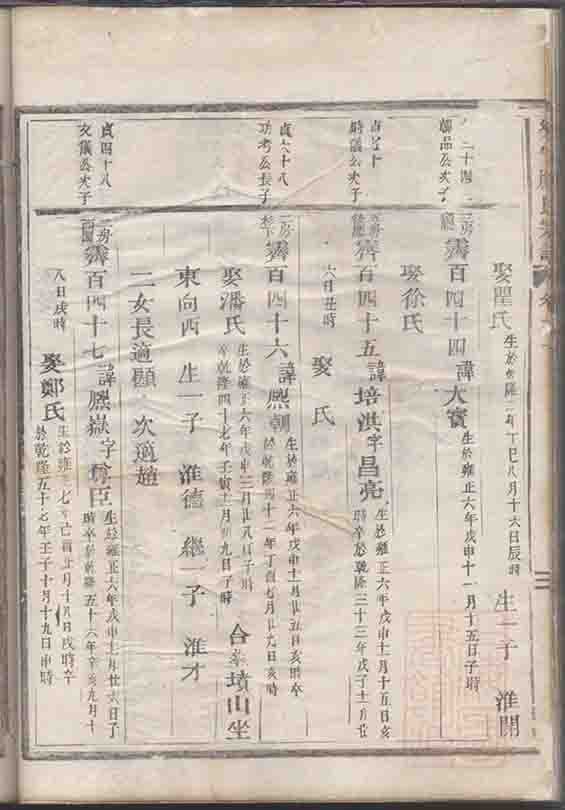 娶瞿氏
生於乾隆二年丁巳八月十六日辰時
生一子 淮開
二十四
公次子
三房
霽百四十四 諱大賓
生於雍正六年戊申十一月十五日子時
娶徐氏
時儀公次子
霽百四十五 諱培洪字昌亮
生於雍正六年戊申十一月十五日亥
時卒於乾隆三十三年戊子十一月廿
六日丑時
娶 氏
貞六十八
功考公長子
二房
霽百四十六 諱熈朝
生於雍正六年戊申十一月廿五日亥時卒
於乾隆四十二年丁酉七月廿九日亥時
娶潘氏
生於雍正六年戊申三月廿八日子時
卒乾隆四十七年壬寅十一月初九日子時
合葬墳山坐
東向西 生一子 淮德 繼一子 淮才
二女長適顧 次適趙
貞四十八
文儀公次子
二房
霽百四十七 諱熈嶽字尊臣
生於雍正六年戊申十一月廿六日子
時卒於乾隆五十六年辛亥九月十
八日戌時
娶鄭氏
生於雍正七年己酉正月十八日戌時卒
於乾隆五十七年壬子十月十九日申時